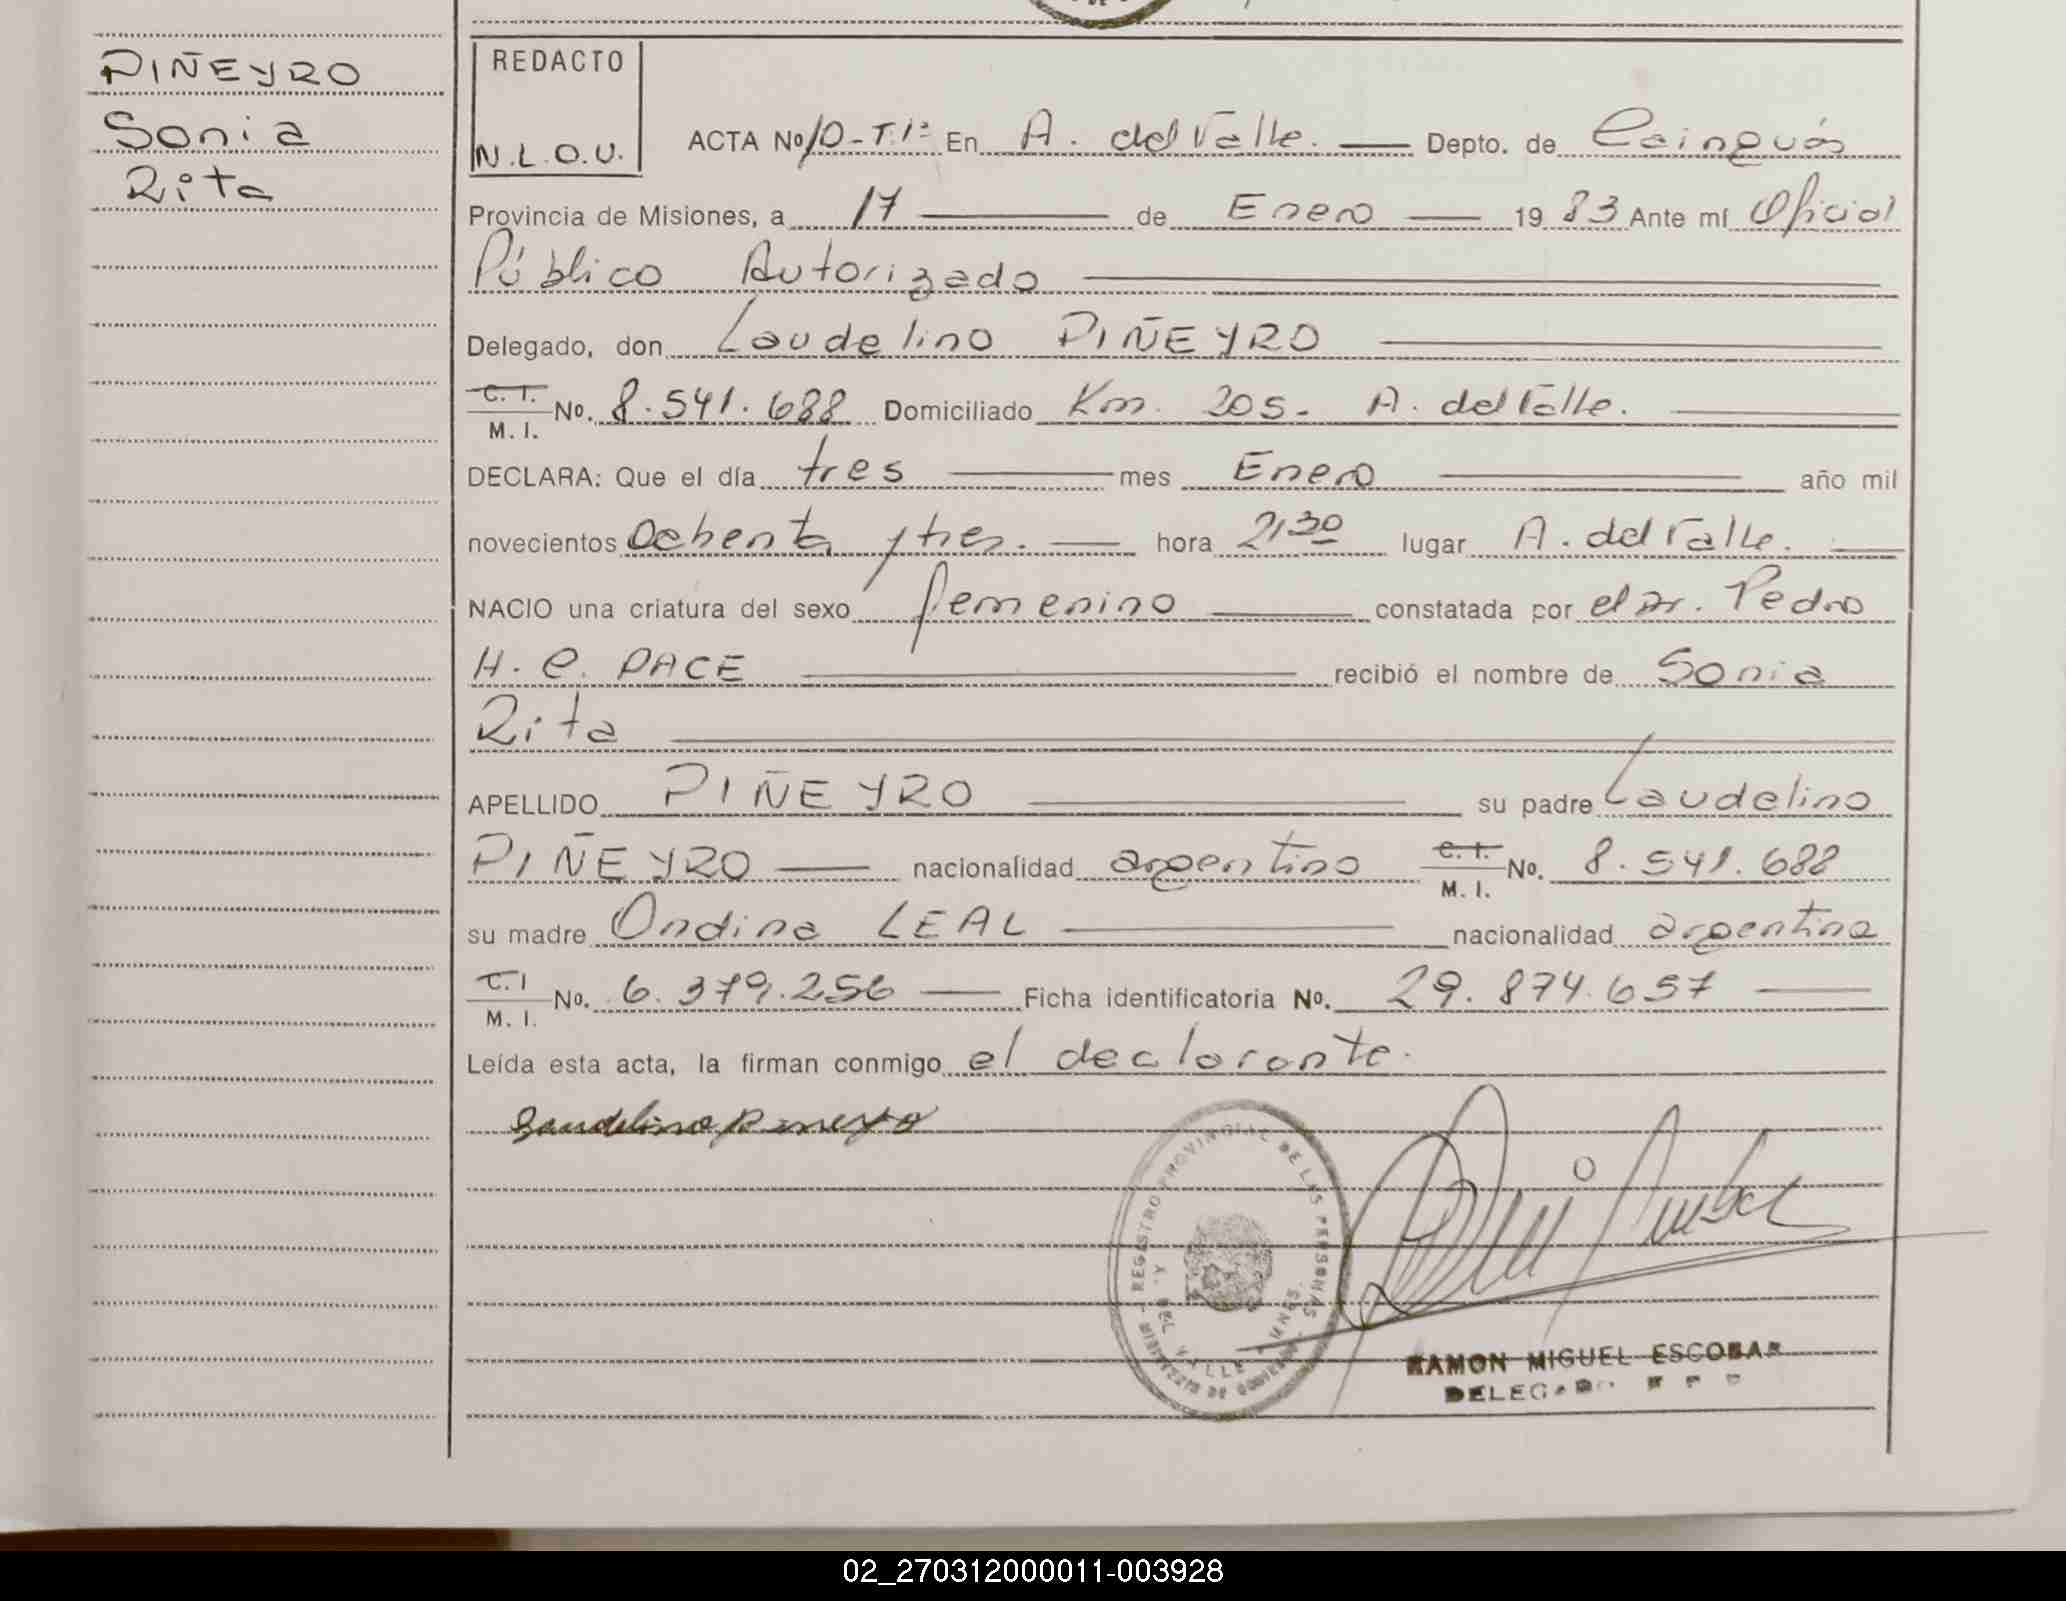 PIÑEYRO
Sonia
Rita
REDACTO
N.L.O.U.
ACTA Nº 10-T.1º En A. del Valle. Depto. de Cainguás
Provincia de Misiones, a 17 de Enero 1983 Ante mí Oficial
Público Autorizado
Delegado, don Laudelino PIÑEYRO
C. I. M. I. No. 8.541.688 Domiciliado Km. 205. A. del Valle.
DECLARA: Que el día tres mes Enero año mil
novecientos Ochenta y tres. hora 21,30 lugar A. del Valle.
NACIO una criatura del sexo femenino constatada por el Dr. Pedro
H. C. PACE recibió el nombre de Sonia
Rita
APELLIDO PIÑEYRO su padre Laudelino
PIÑEYRO nacionalidad argentino C. I. M. I. No. 8.541.688
su madre Ondina LEAL nacionalidad argentina
C. I M. I. No. 6.379.256 Ficha identificatoria No. 29.874.657
Leída esta acta, la firman conmigo el declarante.
Laudelino Piñeyro
REGISTRO PROVINCIAL DE LAS PERSONAS
DEL VALLE MNES.
MINISTERIO DE GOBIERNO
RAMON MIGUEL ESCOBAR
DELEGADO
02_270312000011-003928